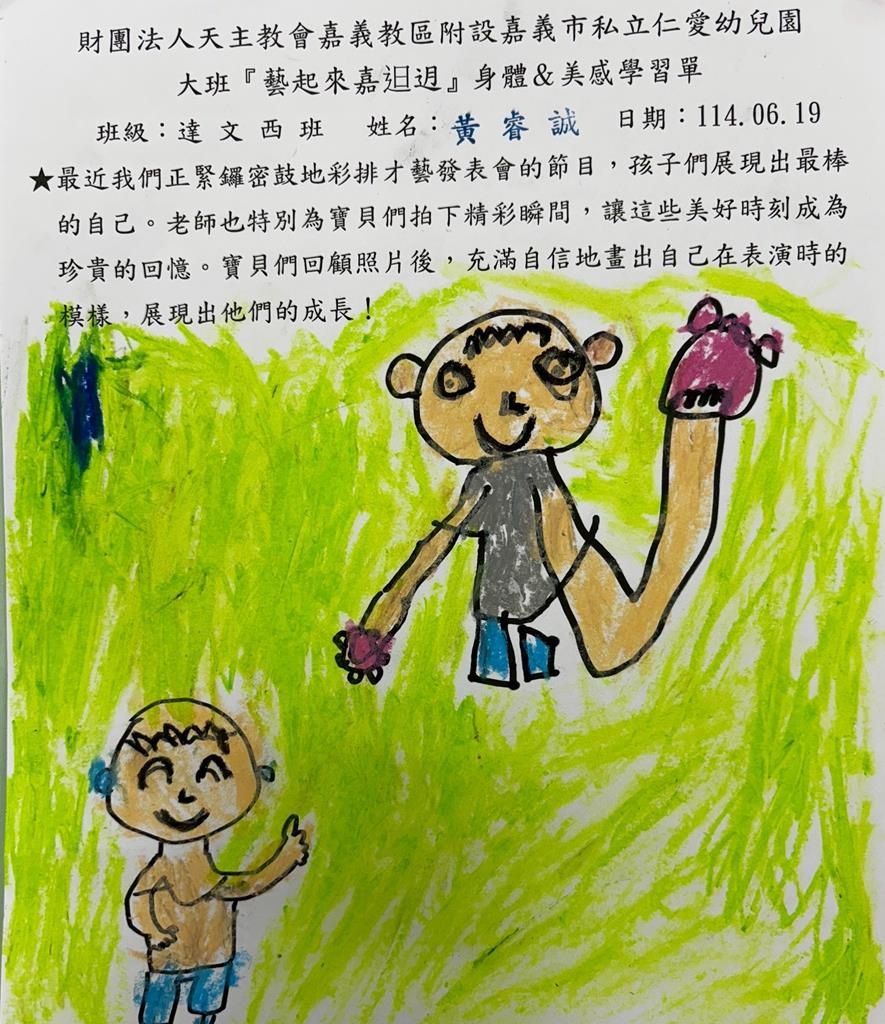 財團法人天主教會嘉義教區附設嘉義市私立仁愛幼兒園
大班『藝起來嘉迴迌』身體&美感學習單
班級：達文西班 姓名：黃睿誠 日期：114.06.19
★最近我們正緊鑼密鼓地彩排才藝發表會的節目，孩子們展現出最棒
的自己。老師也特別為寶貝們拍下精彩瞬間，讓這些美好時刻成為
珍貴的回憶。寶貝們回顧照片後，充滿自信地畫出自己在表演時的
模樣，展現出他們的成長！